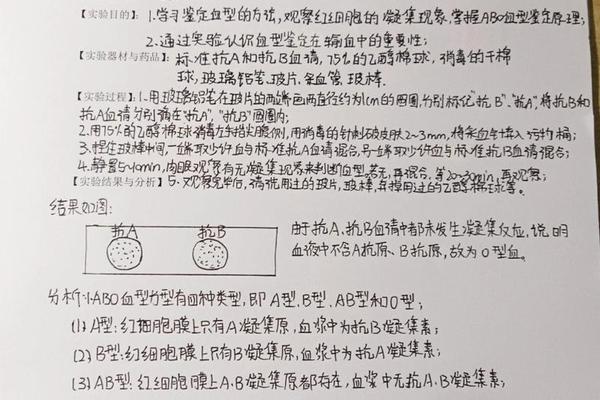 【实验目的】1.学习鉴定血型的方法,观察红细胞的凝集现象,掌握ABO血型鉴定原理;
2.通过实验认识血型鉴定在输血中的重要性;
【实验器材与药品】标准抗A和抗B血清,75%的乙醇棉球,消毒的干棉
球,玻璃铅笔,玻片,采血管,玻棒.
【实验过程】1.用玻璃铅笔在玻片的两端画两直径约为1cm的圆圈,分别标记"抗B"、"抗A",将抗B和
抗A血清分别滴在"抗A","抗B"圆圈内;
2.用75%的乙醇棉球消毒左手指尖腹侧,用消毒的针刺破皮肤2~3mm,将采血针
3.捏住玻棒中间,一端取少许血与标准抗A血清混合,另一端取少许血与标准抗B血清混合;
4.静置5~10min,肉眼观察有无凝集现象来判断血型,若无,再混合,等20~30min,再观察;
【实验结果与分析】5.观察完毕后,清洗用过的玻片,玻棒,用过的乙醇棉球等。
结果如图:
抗A 抗B
由于抗A、抗B血清中都未发生凝集反应,说明
血液中不含A抗原、B抗原,故为O型血。
分析:1.ABO血型分型有四种类型,即A型、B型、AB型和O型;
(1)A型:红细胞膜上只有A凝集原,血浆中为抗B凝集素;
(2)B型:红细胞膜上只有B凝集原,血浆中为抗A凝集素;
(3)AB型:红细胞膜上A、B凝集原都存在,血浆中无抗A、B凝集素;